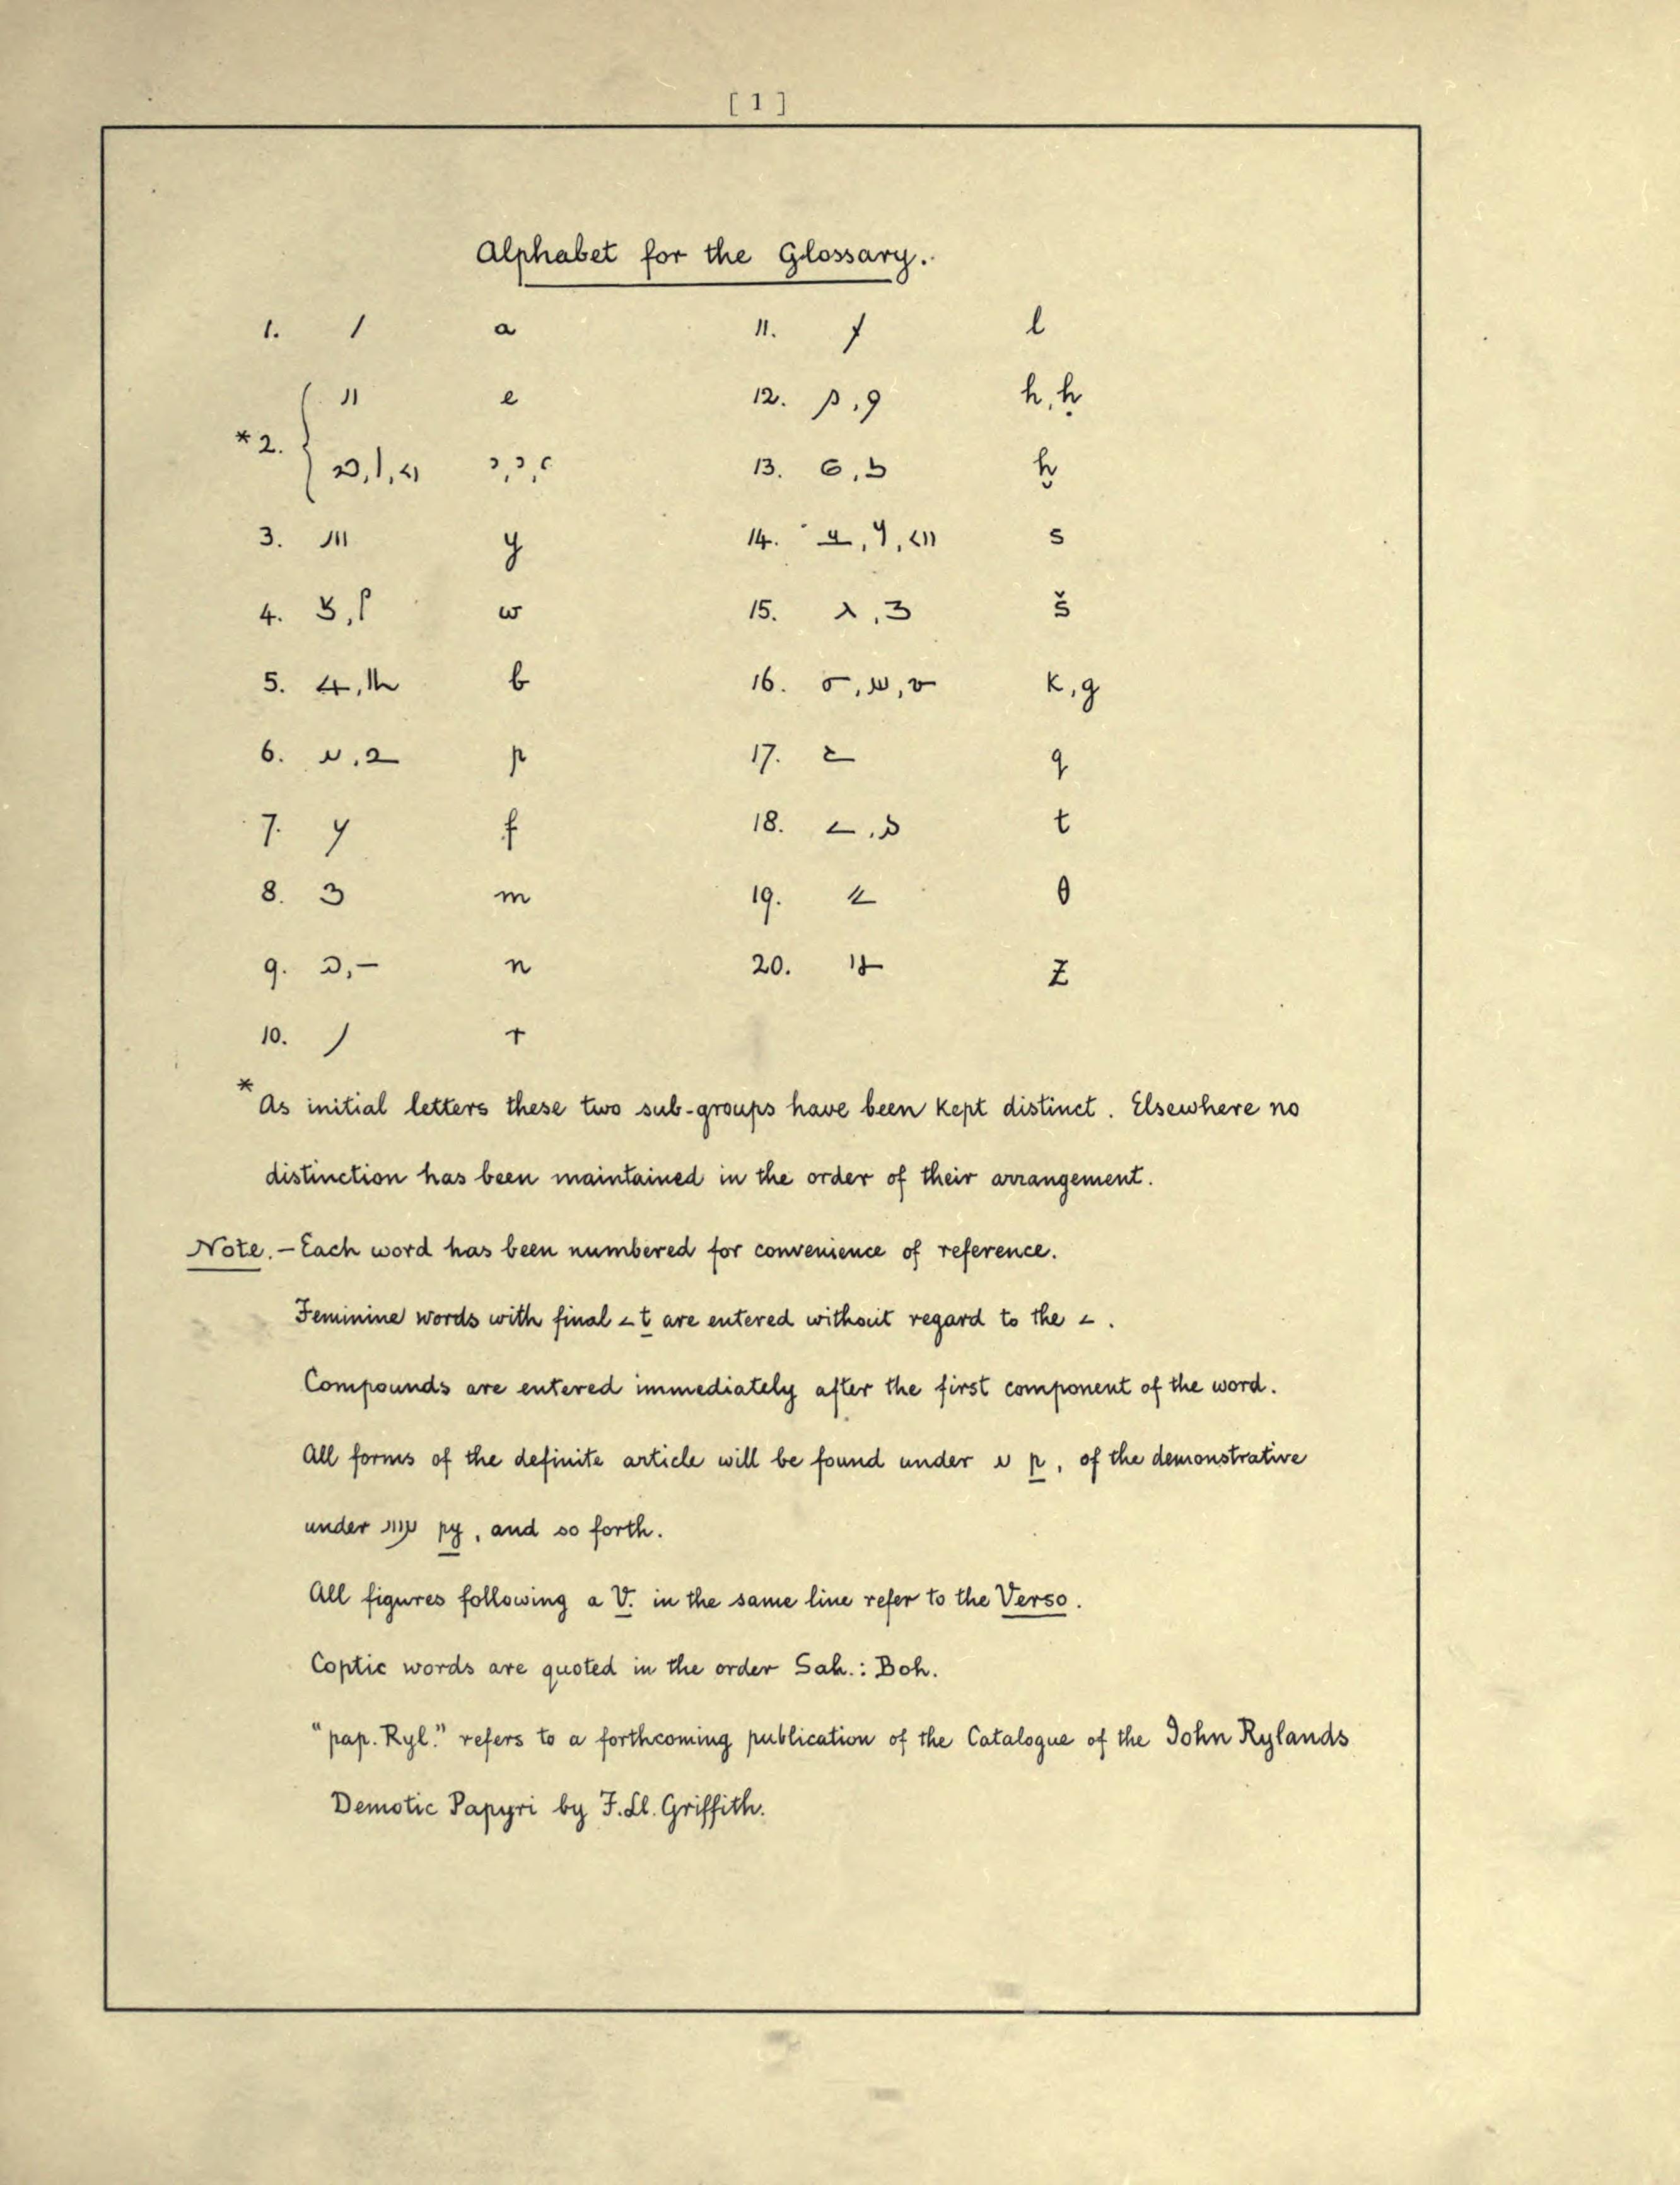 [ 1 ]
Alphabet for the Glossary.
1. a 11. l
e 12. h, ḥ
*2. ꜣ, ꜣ, ꜥ 13. ḫ
3. y 14. s
4. w 15. š
5. b 16. k, g
6. p 17. q
7. f 18. t
8. m 19. θ
9. n 20. z
10. r
* As initial letters these two sub-groups have been kept distinct. Elsewhere no
distinction has been maintained in the order of their arrangement.
Note. – Each word has been numbered for convenience of reference.
Feminine words with final t are entered without regard to the .
Compounds are entered immediately after the first component of the word.
All forms of the definite article will be found under p, of the demonstrative
under py, and so forth.
All figures following a V. in the same line refer to the Verso.
Coptic words are quoted in the order Sah.: Boh.
"pap. Ryl." refers to a forthcoming publication of the Catalogue of the John Rylands
Demotic Papyri by F. Ll. Griffith.